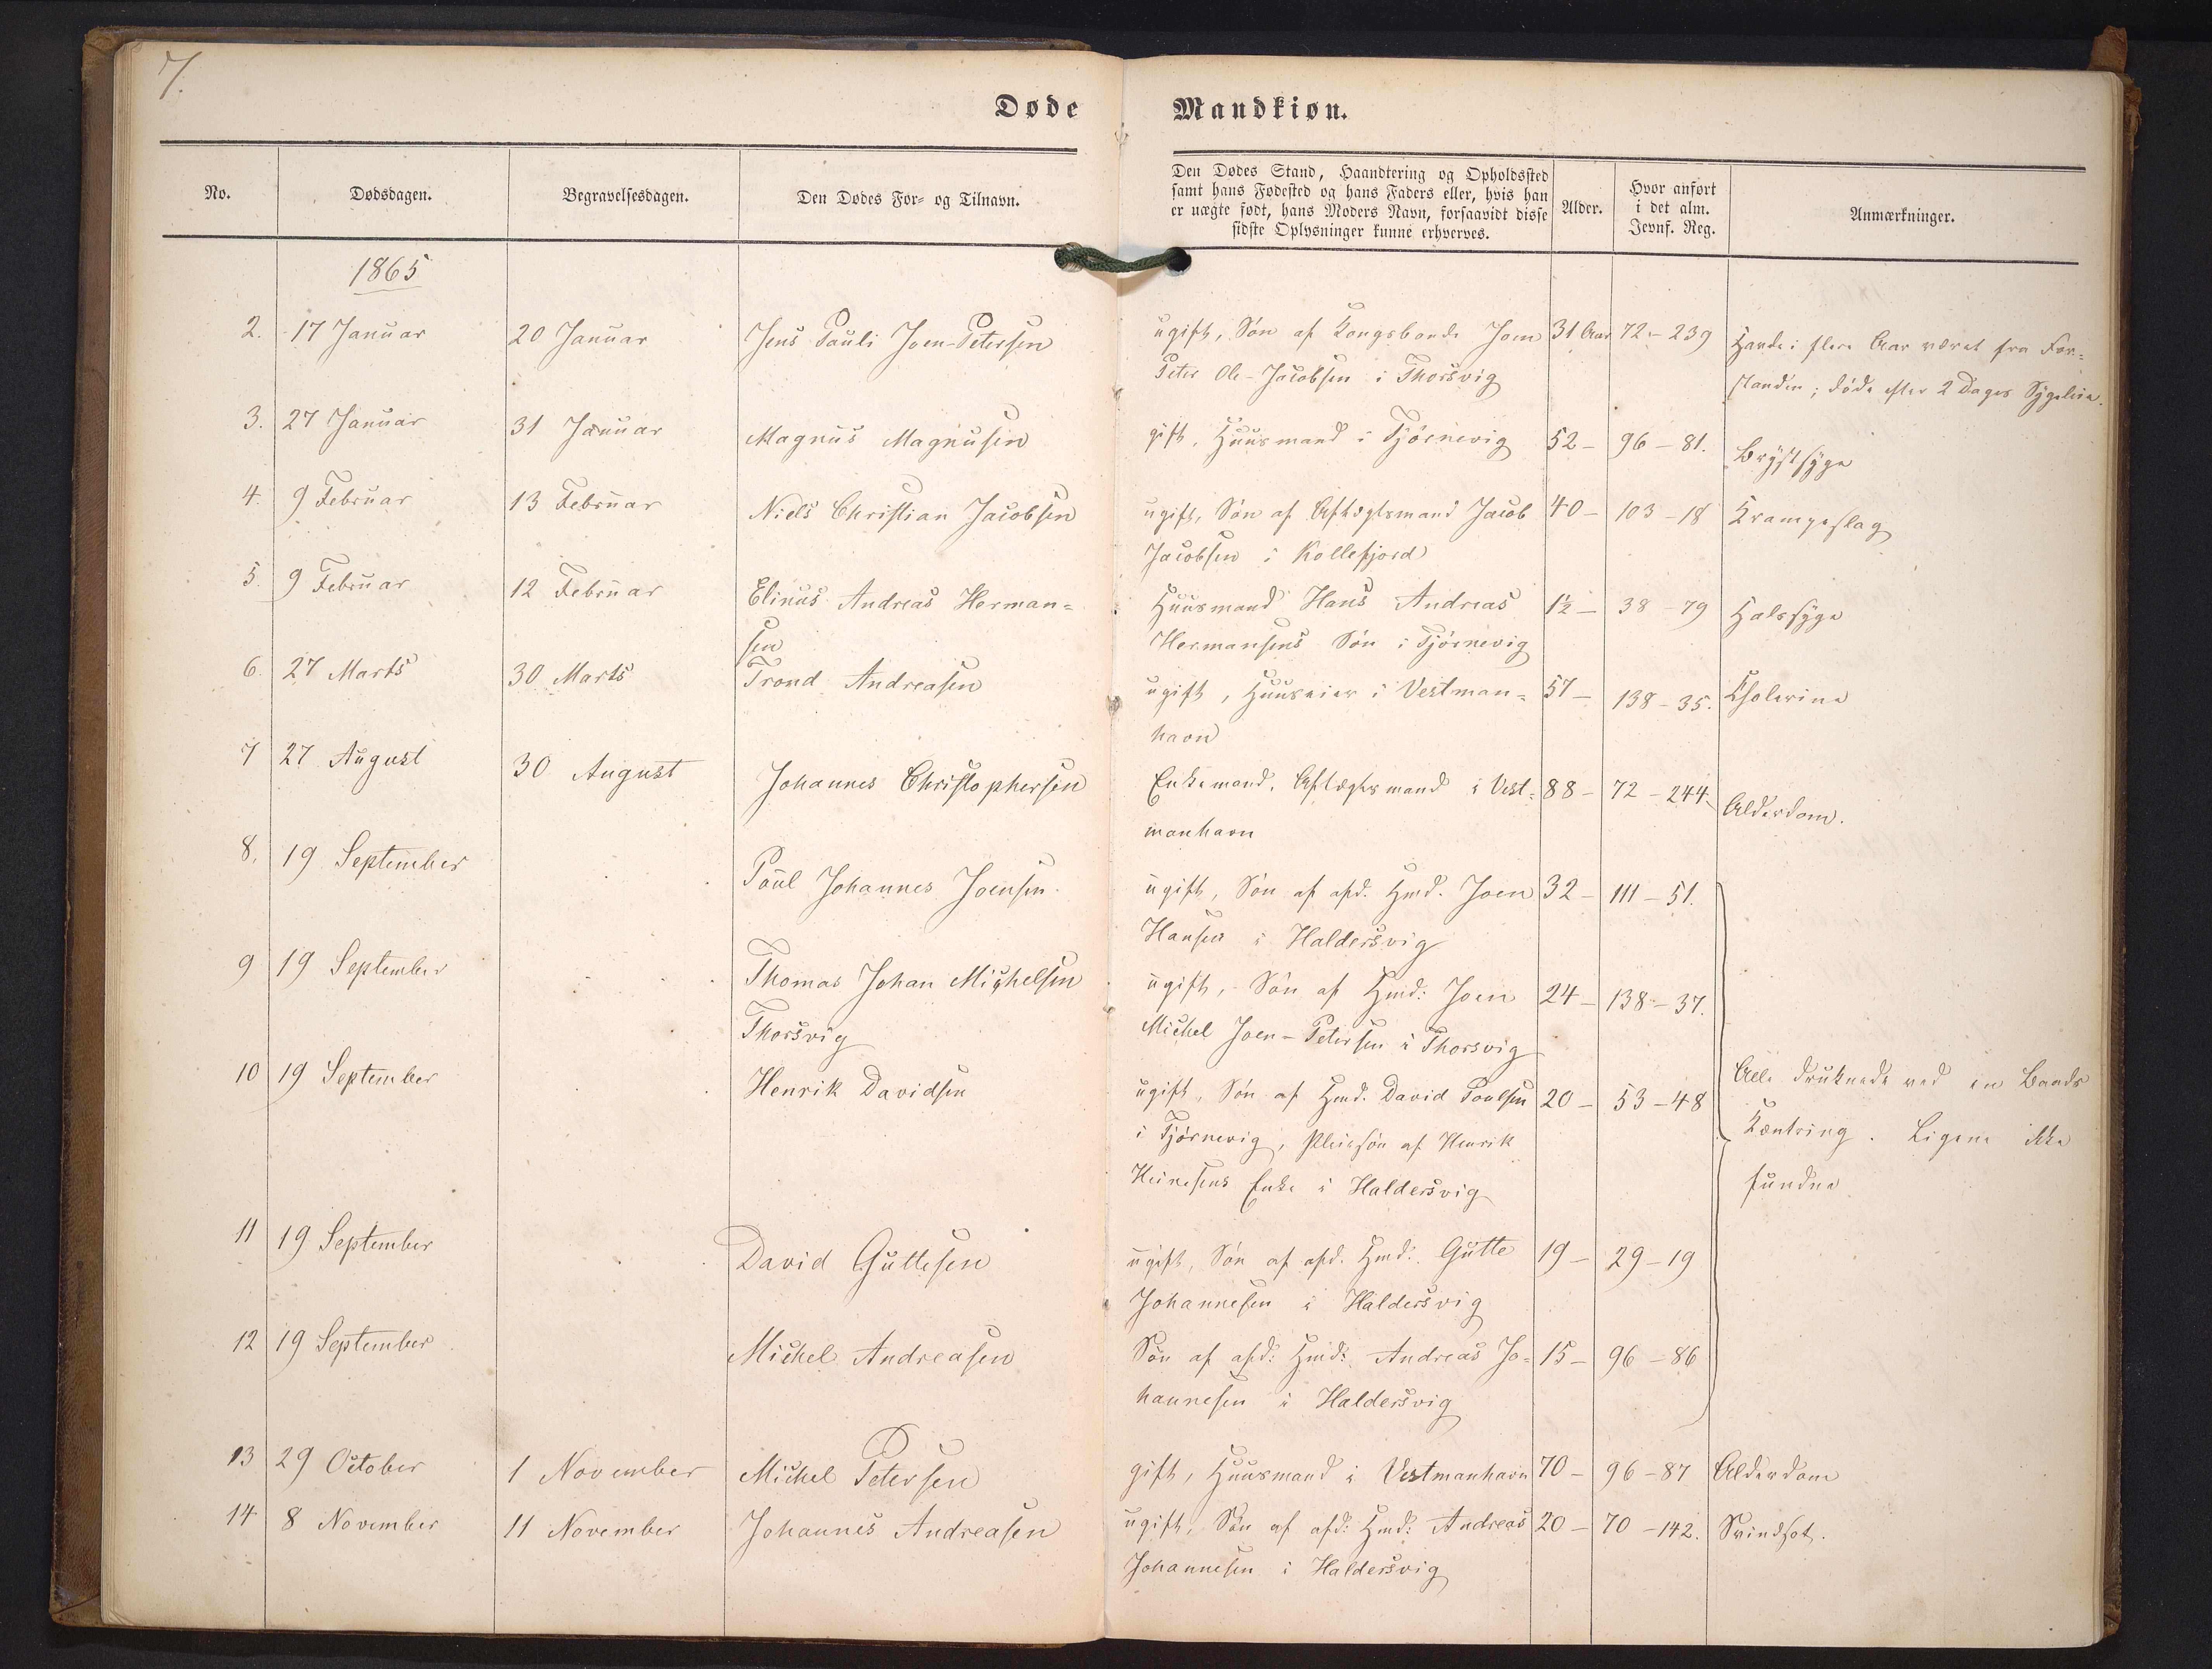 7.
Døde Mandkiøn.
No. Dødsdagen. Begravelsesdagen. Den Dødes For- og Tilnavn. Den Dødes Stand, Haandtering og Opholdssted samt hans Fødested og hans Faders eller, hvis han er uægte født, hans Moders Navn, forsaavidt disse sidste Oplysninger kunne erhverves. Alder. Hvor anført i det alm. Jevnf. Reg. Anmærkninger.
1865
2. 17 Januar 20 Januar Jens Pauli Joen-Petersen ugift, Søn af Kongsbonde Joen 31 Aar 72-239 Havde i flere Aar været fra For=
Peter Ole-Jacobsen i Thorsvig standen; døde efter 2 Dages Sygeleie.
3. 27 Januar 31 Januar Magnus Magnusen gift, Huusmand i Tjörnevig 52- 96-81. Brystsyge
4. 9 Februar 13 Februar Niels Christian Jacobsen ugift, Søn af Aftægtsmand Jacob 40- 103-18 Krampeslag
Jacobsen i Kollefjord
5. 9 Februar 12 Februar Elinus Andreas Herman= Huusmand Hans Andreas 1½- 38-79 Halssyge
sen Hermansens Søn i Tjörnevig
6. 27 Marts 30 Marts Trond Andreasen ugift, Huuseier i Vestman= 57- 138-35. Cholerine
havn
7 27 August 30 August Johannes Christophersen Enkemand. Aftægtsmand i Vest= 88- 72-244. Alderdom.
manhavn
8. 19 September Poul Johannes Joensen. ugift, Søn af afd. Hmd. Joen 32- 111-51.
Hansen i Haldersvig
9 19 September Thomas Johan Michelsen ugift, Søn af Hmd: Joen 24- 138-37.
Thorsvig Michel Joen-Petersen i Thorsvig
10 19 September Henrik Davidsen ugift, Søn af Hmd. David Poulsen 20- 53-48 Alle druknede ved en Baads
i Tjörnevig, Pleiesøn af Henrik Kæntring. Ligene ikke
Heinesens Enke i Haldersvig fundne
11 19 September David Guttesen ugift, Søn af afd. Hmd: Gutte 19- 29-19
Johannesen i Haldersvig
12 19 September Michel Andreasen Søn af afd: Hmd: Andreas Jo= 15- 96-86
hannesen i Haldersvig
13 29 October 1 November Michel Petersen gift, Huusmand i Vestmanhavn 70- 96-87 Alderdom
14 8 November 11 November Johannes Andreasen ugift, Søn af afd: Hmd: Andreas 20- 70-142. Svindsot.
Johannesen i Haldersvig